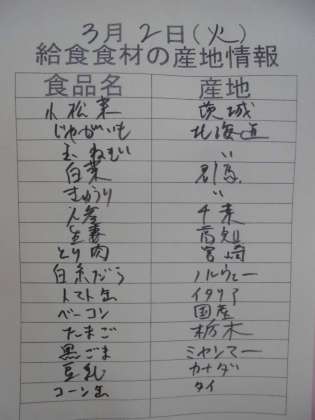 3月2日(火)
給食食材の産地情報
食品名 産地
小松菜 茨城
じゃがいも 北海道
玉ねぎ 〃
白菜 群馬
きゅうり 〃
人参 千葉
生姜 高知
とり肉 宮崎
白糸だら ノルウェー
トマト缶 イタリア
ベーコン 国産
たまご 栃木
黒ごま ミャンマー
豆乳 カナダ
コーン缶 タイ